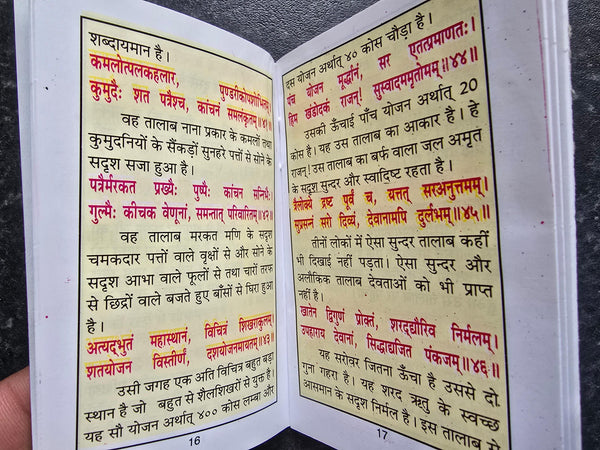 शब्दायमान है।
कमलोत्पलकहलार, पुण्डरीकोपशोभितम्।
कुमुदैः शत पत्रैश्च, कांचनं समलंकृतम्॥४१॥
वह तालाब नाना प्रकार के कमलों तथा
कुमुदनियों के सैंकड़ों सुनहरे पत्तों से सोने के
सदृश सजा हुआ है।
पत्रैर्मरकत प्रख्यैः पुष्पैः कांचन सन्निभैः
गुल्मैः कीचक वेणूनां, समन्तात् परिवारितम्॥४२॥
वह तालाब मरकत मणि के सदृश
चमकदार पत्तों वाले वृक्षों से और सोने के
सदृश आभा वाले फूलों से तथा चारों तरफ
से छिद्रों वाले बजते हुए बाँसों से घिरा हुआ
है।
अत्यद्भुतं महास्थानं, विचित्रं शिखराकुलम्
शतयोजन विस्तीर्णं, दशयोजनमायतम्॥४३॥
उसी जगह एक अति विचित्र बहुत बड़ा
स्थान है जो बहुत से शैलशिखरों से युक्त है।
यह सौ योजन अर्थात् ४०० कोस लम्बा और
16
दस योजन अर्थात् ४० कोस चौड़ा है।
पंच योजन मूर्द्धानं, सर एतत्प्रमाणतः।
हिम खंडोदकं राजन्! सुस्वादममृतोमम्॥४४॥
उसकी ऊँचाई पाँच योजन अर्थात् 20
कोस है। यह उस तालाब का आकार है। हे
राजन्! उस तालाब का बर्फ वाला जल अमृत
के सदृश सुन्दर और स्वादिष्ट रहता है।
त्रैलोक्ये द्रष्ट पूर्वं च, यत्तत् सरअनुत्तमम्।
सुप्रसन्नं सरो दिव्यं, देवानामपि दुर्लभम्॥४५॥
तीनों लोकों में ऐसा सुन्दर तालाब कहीं
भी दिखाई नहीं पड़ता। ऐसा सुन्दर और
अलौकिक तालाब देवताओं को भी प्राप्त
नहीं है।
खातेन द्विगुणं प्रोक्तं, शरदद्यौरिव निर्मलम्।
उपहाराय देवानां, सिद्धाद्यजित पंकजम्॥४६॥
यह सरोवर जितना ऊँचा है उससे दो
गुना गहरा है। यह शरद ऋतु के स्वच्छ
आसमान के सदृश निर्मल है। इस तालाब से
17